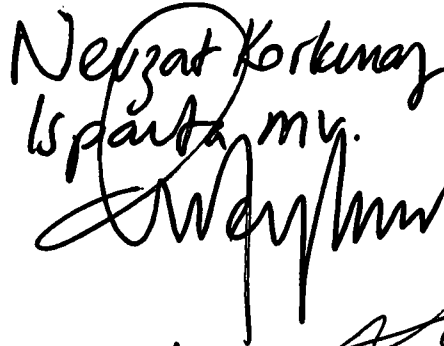 Nevzat Korkmaz
Isparta mv.